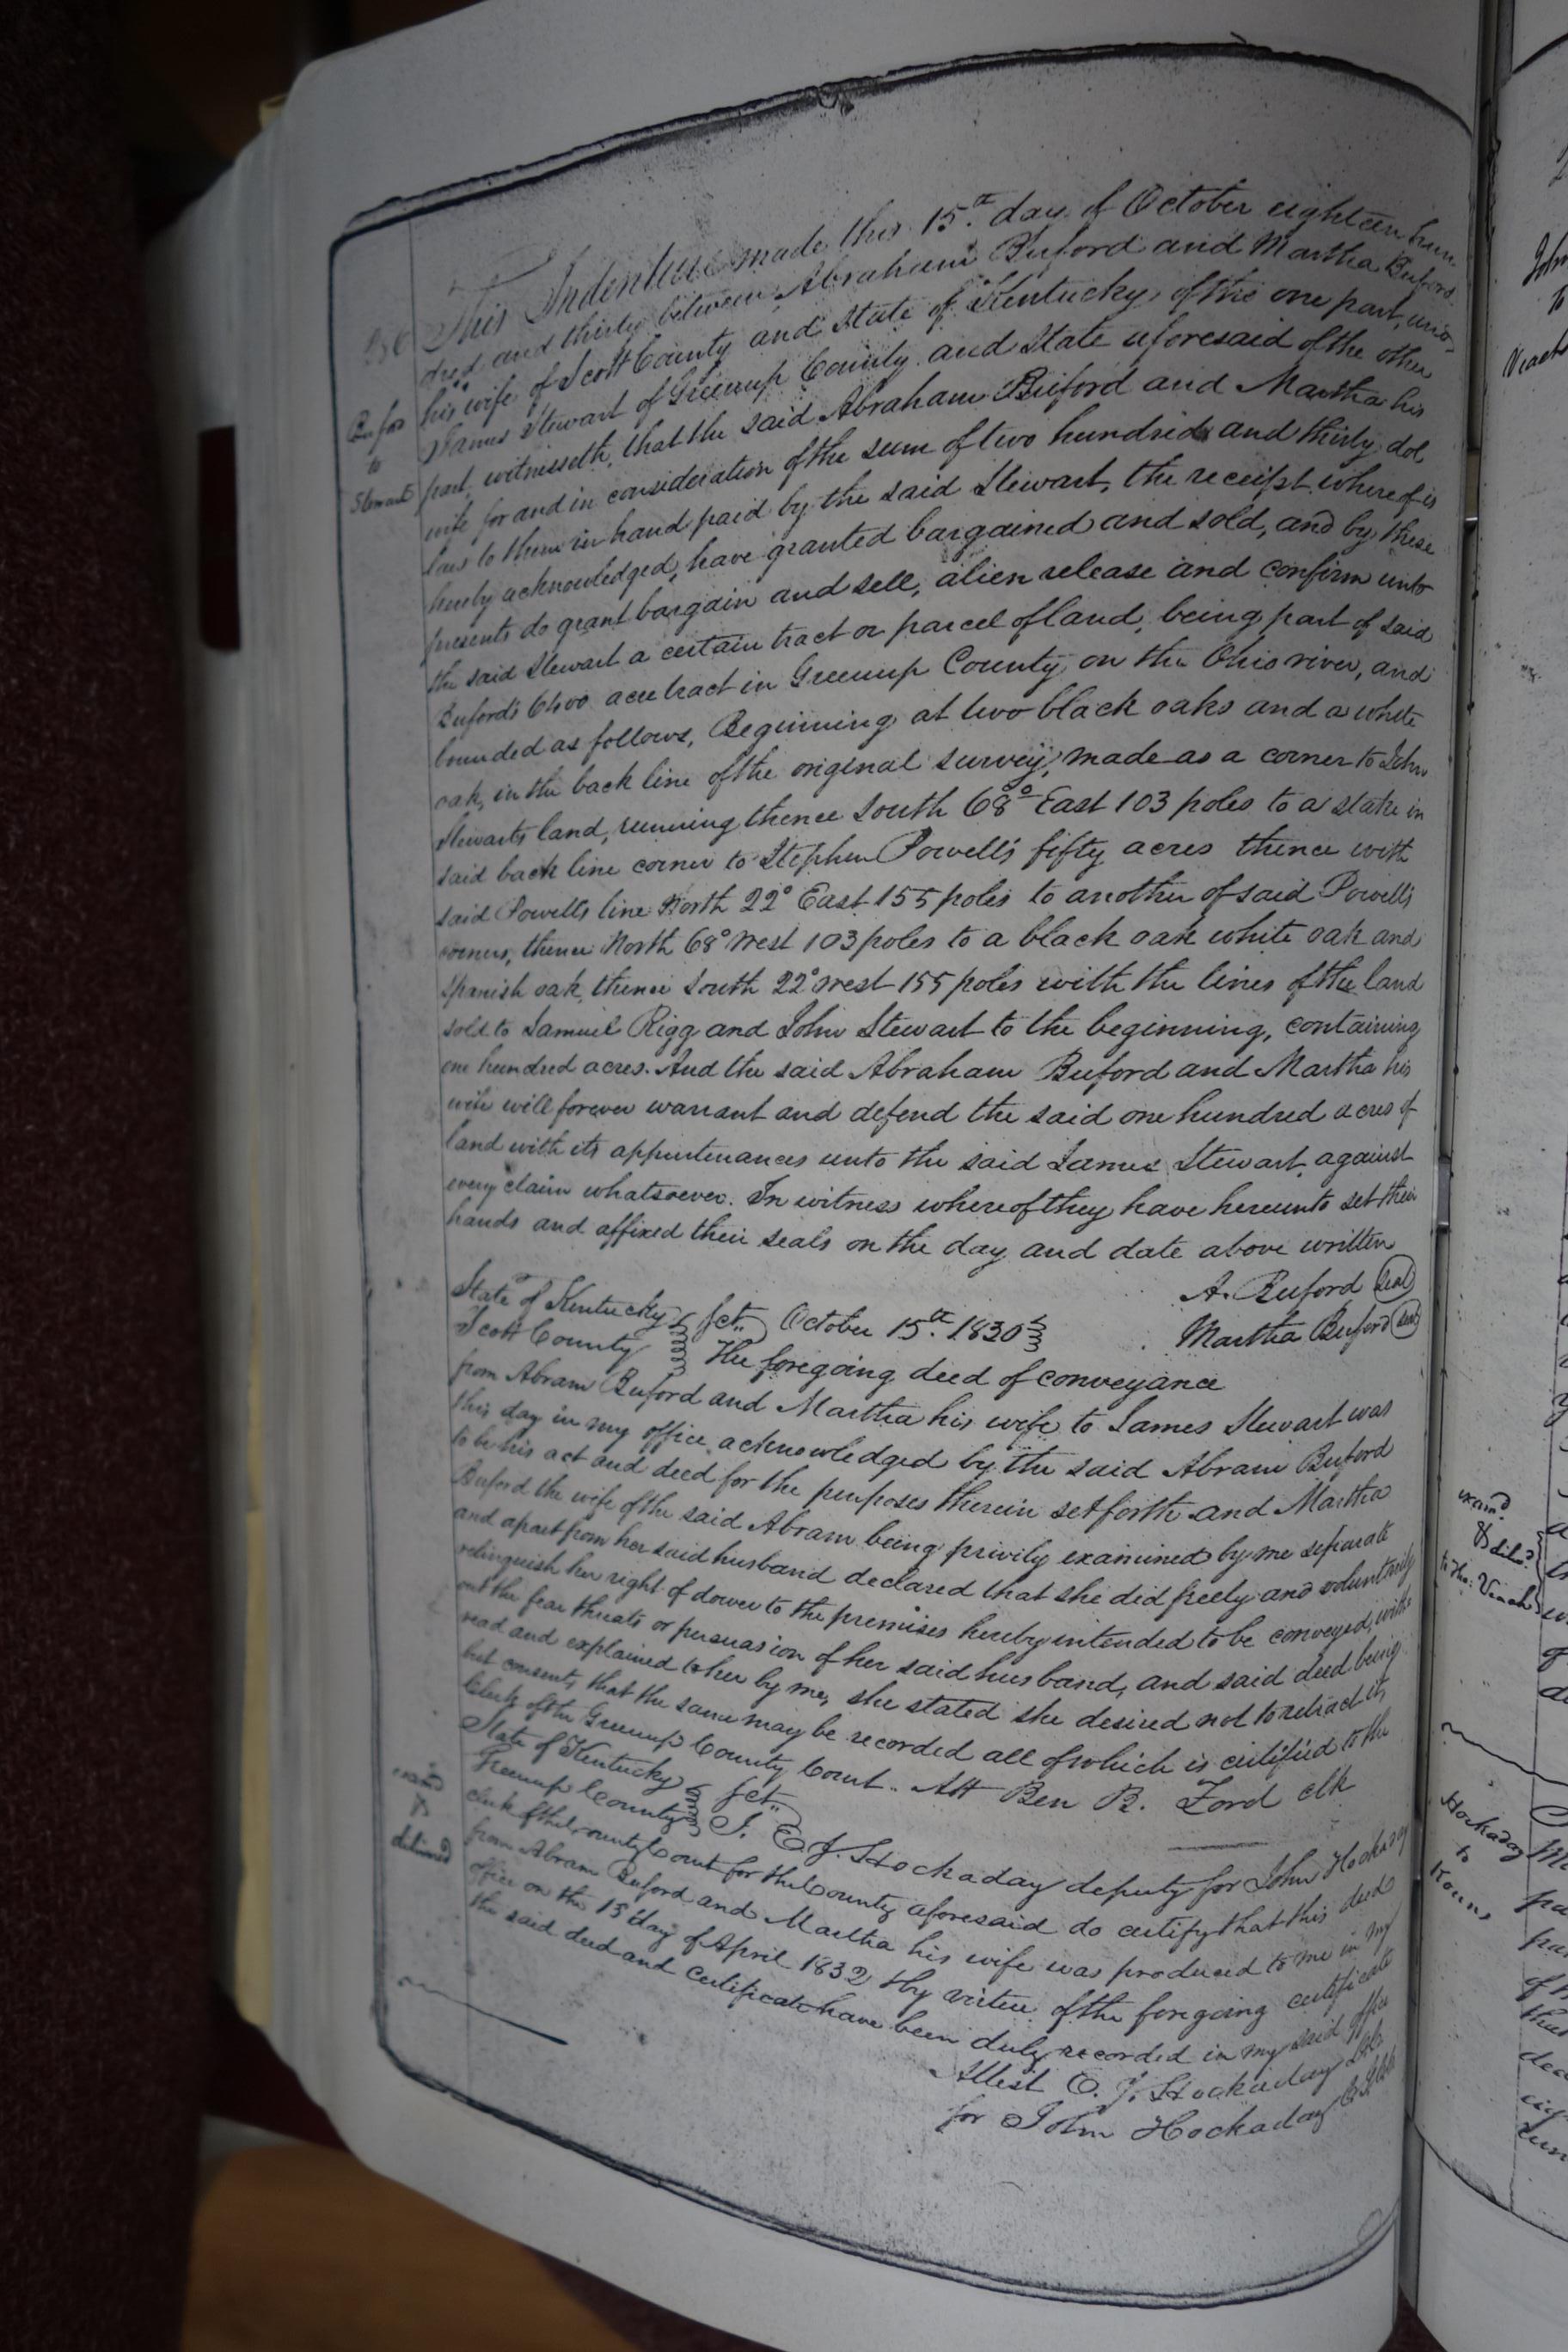 This Indenture made this 15th. day of October eighteen hun
dred and thirty between Abraham Buford and Martha Buford
his wife of Scott County and State of Kentucky of the one part, and
James Stewart of Greenup County and State aforesaid of the other
part, witnesseth, that the said Abraham Buford and Martha his
wife for and in consideration of the sum of two hundred and thirty dol
lars to them in hand paid by the said Stewart, the receipt whereof is
hereby acknowledged, have granted bargained and sold, and by these
presents do grant bargain and sell, alien release and confirm unto
the said Stewart a certain tract or parcel of land, being part of said
Buford's acre tract in Greenup County on the Ohio river, and
bounded as follows, Beginning at two black oaks and a white
oak, in the back line of the original survey, made as a corner to John
Stewarts land, running thence South 68° East 103 poles to a stake in
said back line corner to Stephen Powell's fifty acres thence with
said Powells line North 22° East 155 poles to another of said Powells
corners, thence North 68° West 103 poles to a black oak white oak and
Spanish oak, thence South 22° West 155 poles with the lines of the land
sold to Samuel Rigg and John Stewart to the beginning, containing
one hundred acres. And the said Abraham Buford and Martha his
wife will forever warrant and defend the said one hundred acres of
land with its appurtenances unto the said James Stewart against
every claim whatsoever. In witness whereof they have hereunto set their
hands and affixed their seals on the day and date above written
A. Buford Seal
Martha Buford Seal
Buford
to
Stewart
State of Kentucky Sct. October 15th. 1830
Scott County The foregoing deed of conveyance
from Abram Buford and Martha his wife to James Stewart was
this day in my office acknowledged by the said Abram Buford
to be his act and deed for the purposes therein set forth and Martha
Buford the wife of the said Abram being privily examined by me separate
and apart from her said husband declared that she did freely and voluntarily
relinquish her right of dower to the premises hereby intended to be conveyed, with
out the fear threats or persuasion of her said husband, and said deed being
read and explained to her by me, she stated she desired not to retract it,
but consents that the same may be recorded all of which is certified to the
Clerk of the Greenup County Court. Att Ben B. Ford clk
State of Kentucky Sct.
Greenup County I. E J. Hockaday deputy for John Hockaday
clerk of the County Court for the County aforesaid do certify that this deed
from Abram Buford and Martha his wife was produced to me in my
office on the 13 day of April 1832 by virtue of the foregoing certificate
the said deed and certificate have been duly recorded in my said office
Attest J. Hockaday
for John Hockaday
examd
&
delivered
examd
& deld
Hockaday
to
Kouns